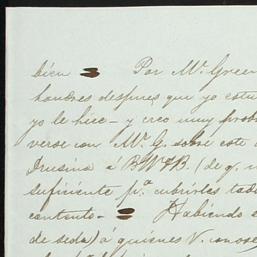 bien — Por Mr. Green
hombres despues que yo estu
yo le hice — y creo muy prob
verse con Mr. G. sobre este
Drusina á BWFB. (de q.
suficiente pa. cubrirles tod
contento — Habiendo
de seda) á quienes V. conose